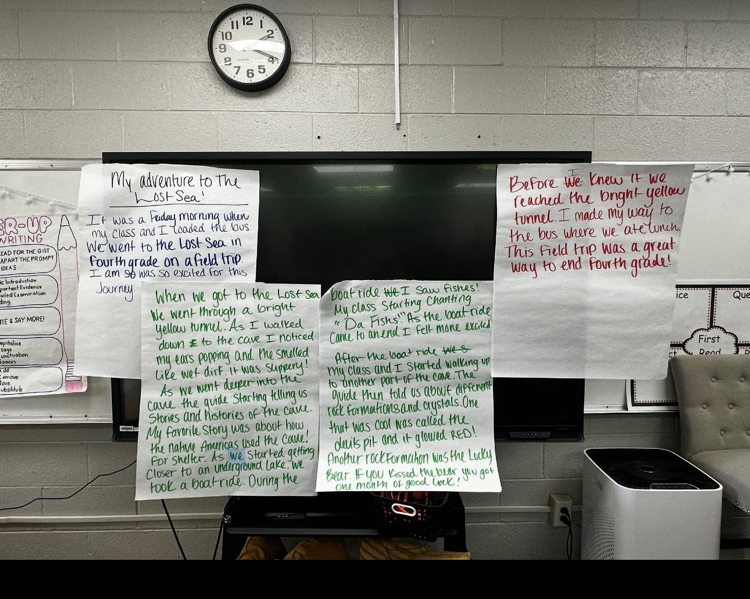 My adventure to the
Lost Sea!
It was a Friday morning when
my class and I loaded the bus
We went to the Lost Sea in
fourth grade on a field trip.
I am so was so excited for this
Journey.
When we got to the Lost Sea
We went through a bright
yellow tunnel. As I walked
down to the cave I noticed
my ears popping and the smelled
like wet dirt. it was slippery!
As we went deeper into the
cave the guide starting telling us
Stories and histories of the cave.
My favorite Story was about how
the native Americas used the Cave!
For Shelter. As we started getting
Closer to an underground Lake, we
took a boat ride. During the
boat ride We I saw fishes!
My class Starting Chanting
"Da Fishs!" As the boat ride
came to an end I felt more excited.
After the boat ride we s
my class and I started walking up
to another part of the cave. The
guide then told us about different
rock formations and crystals. One
that was cool was called the
devils pit and it glowed RED!
Another rock formation was the Lucky
Bear. If you kissed the bear you got
one month of good luck!
Before We Knew it we
I
reached the bright yellow
tunnel. I made my way to
the bus where we ate lunch.
This field trip was a great
way to end fourth grade!
ER-UP
WRITING
EAD FOR THE GIST
APART THE PROMPT
IDEAS
Introduction
Evidence
Examination
TE & SAY MORE!
apitalize
sage
unctuation
dd
emove
ove
ubstitute
ice
Que
First
Read
12
1
2
3
4
5
6
7
8
9
10
11